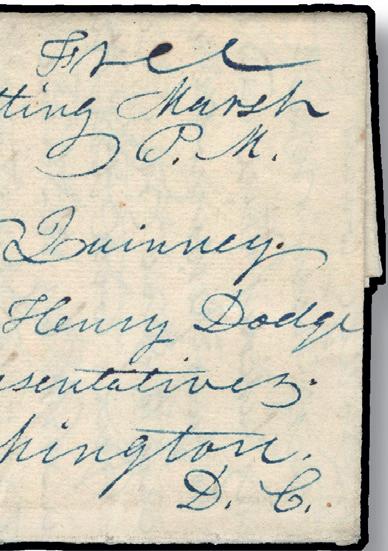 Free
tting Marsh
P. M.
Quinney.
Henry Dodge
esentatives.
hington.
D. C.